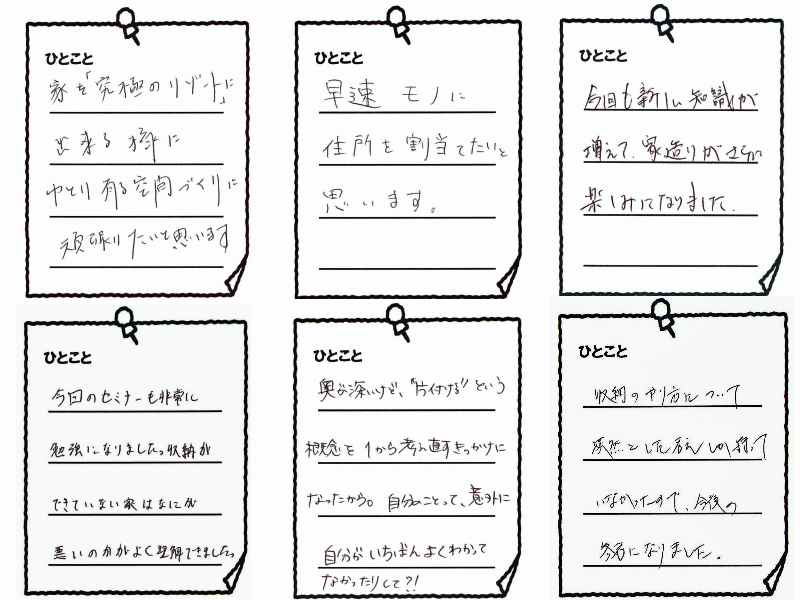 ひとこと
家を「究極のリゾート」に
出来る様に
ゆとり有る空間づくりに
頑張りたいと思います
ひとこと
早速 モノに
住所を割当てたいと
思います。
ひとこと
今回も新しい知識が
増えて、家造りがさらに
楽しみになりました。
ひとこと
今回のセミナーも非常に
勉強になりました。収納が
できていない家はなにが
悪いのかがよく理解できました。
ひとこと
奥が深いけど、"片付ける"という
概念を1から考え直すきっかけに
なったから。自分のことって、意外に
自分がいちばんよくわかって
なかったりして?!
ひとこと
収納のやり方について
漠然とした考えしか持って
いなかったので、今後の
参考になりました。